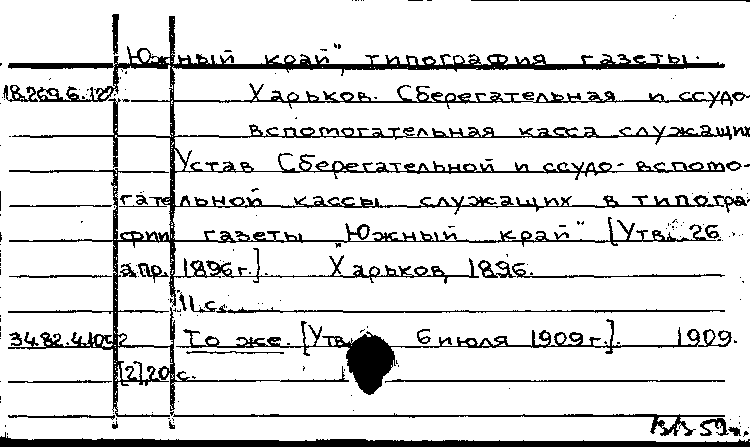 Южный край", типография газеты.
18.269.6.122 Харьков. Сберегательная и ссудо-
вспомогательная касса служащих
Устав Сберегательной и ссудо-вспомо-
гательной кассы служащих в типогра-
фии газеты „Южный край" [Утв. 26
апр. 1896 г.]. Харьков, 1896.
11 с.
34.82.4.1092 То же. [Утв. 6 июля 1909 г.]. 1909.
[2], 20 с.